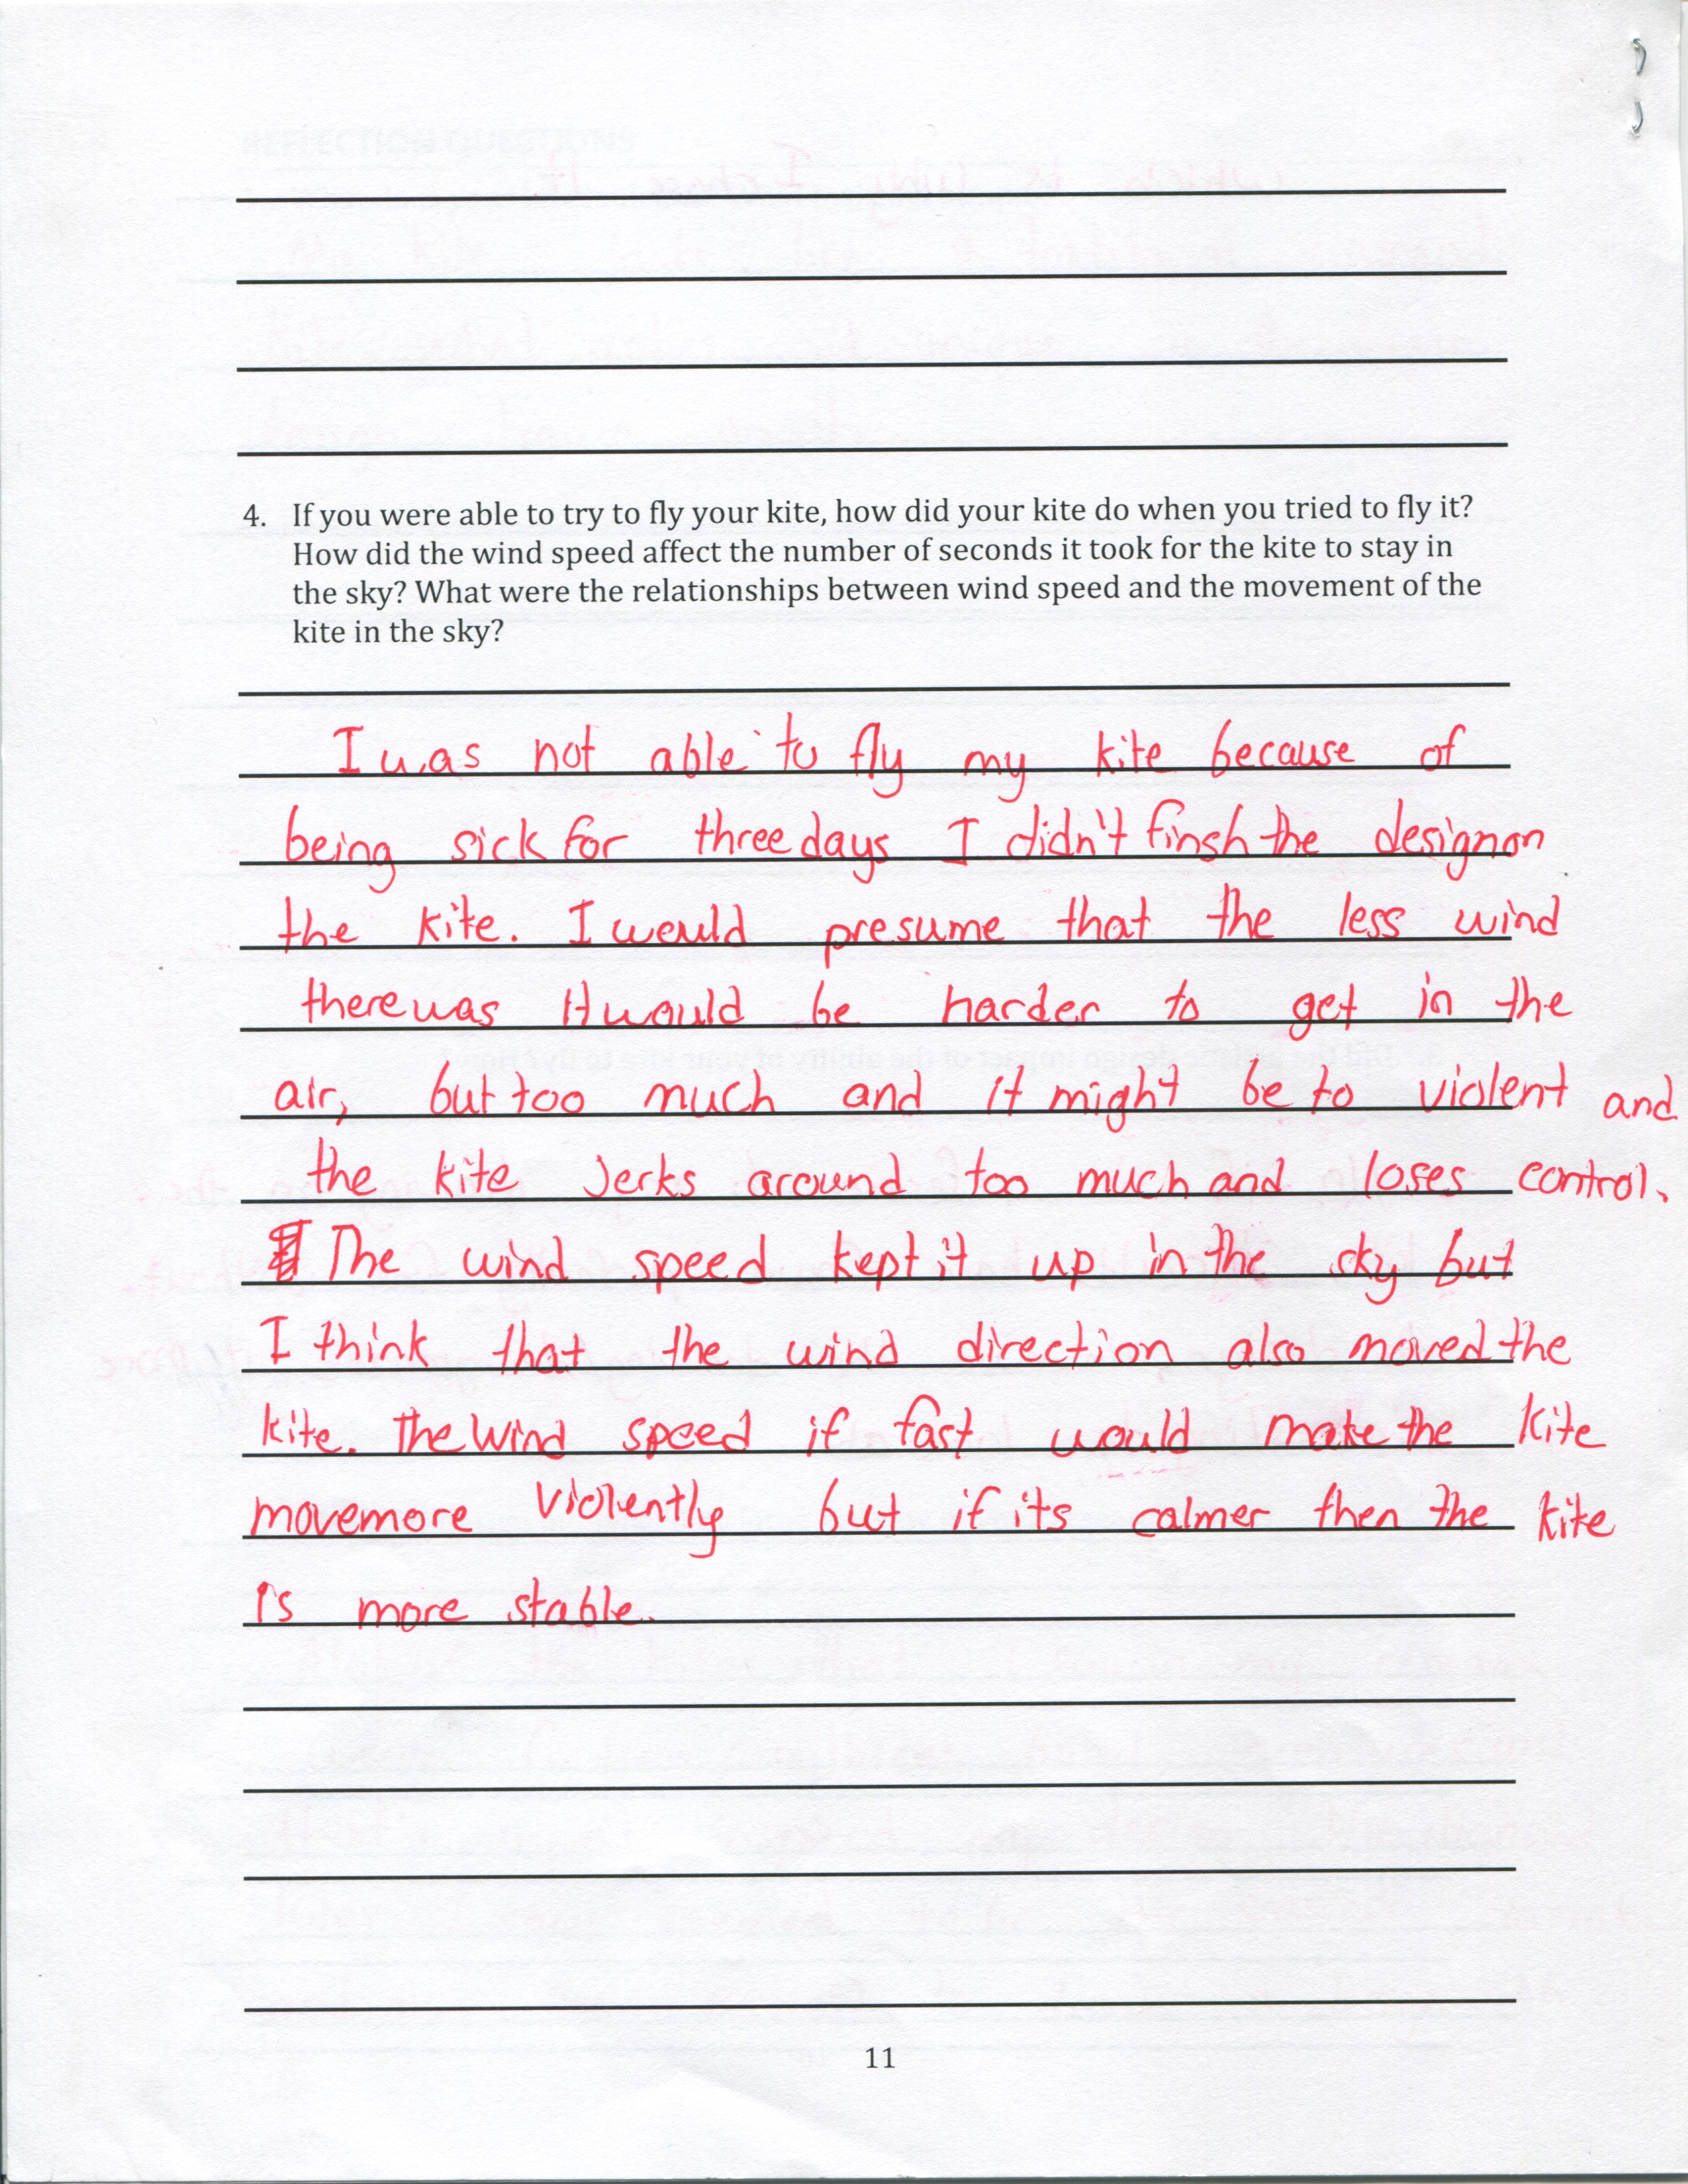 4. If you were able to try to fly your kite, how did your kite do when you tried to fly it?
How did the wind speed affect the number of seconds it took for the kite to stay in
the sky? What were the relationships between wind speed and the movement of the
kite in the sky?
I was not able to fly my kite because of
being sick for three days I didn't finsh the design on
the kite. I would presume that the less wind
there was it would be harder to get in the
air, but too much and it might be to violent and
the kite jerks around too much and loses control.
The wind speed kept it up in the sky but
I think that the wind direction also moved the
kite. The wind speed if fast would make the kite
move more violently but if its calmer then the kite
is more stable.
11